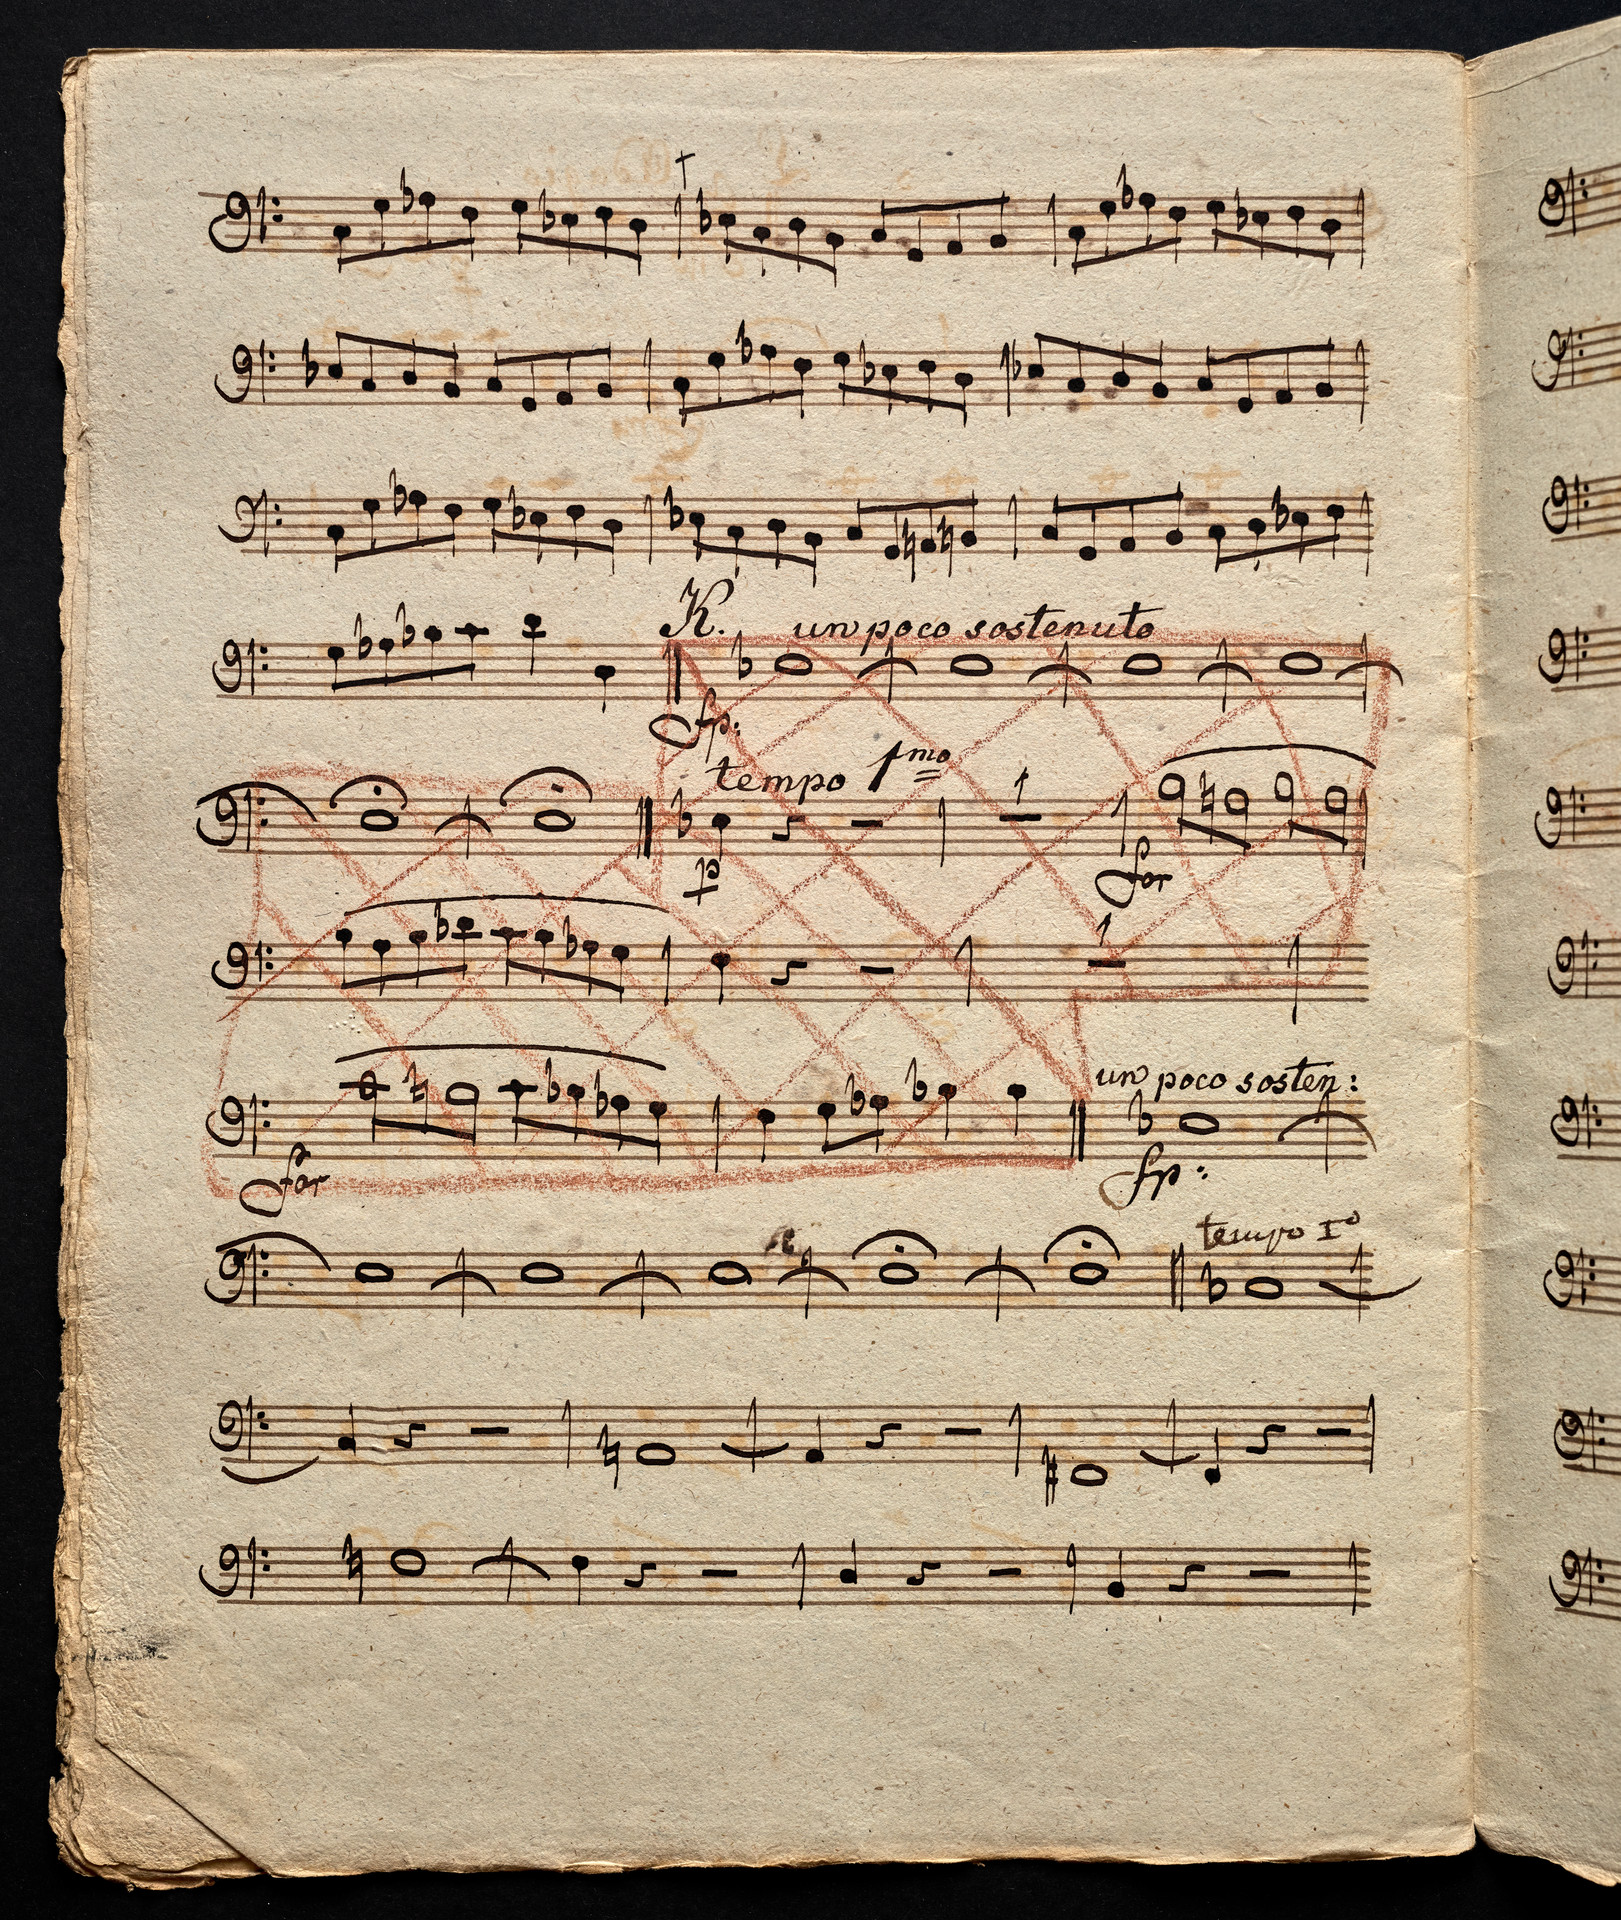 K. un poco sostenuto
fp:
tempo 1mo
p
for
for
un poco sosten:
fp:
tempo Io